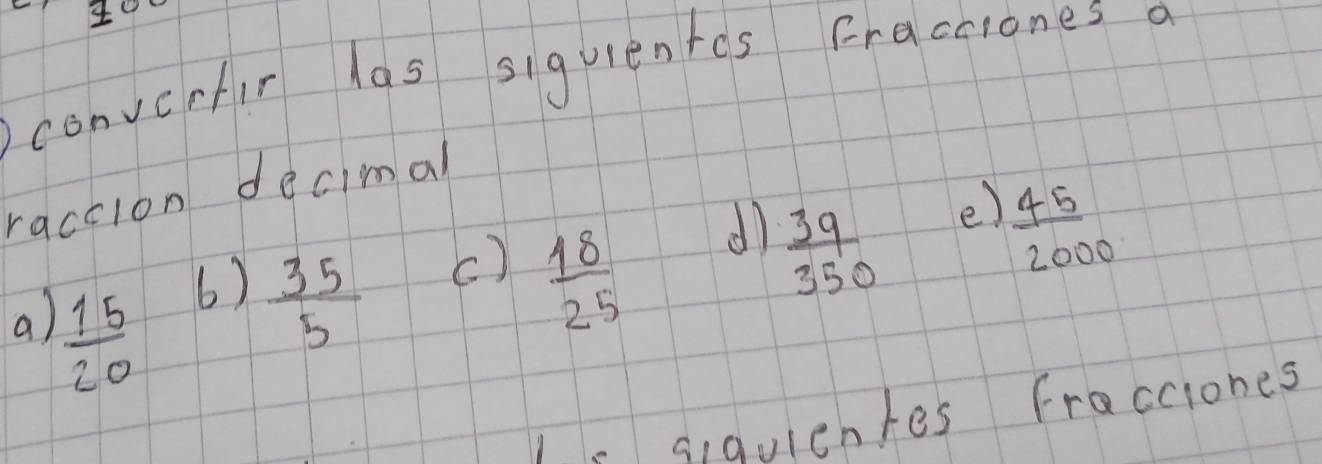 convertir las siguientes Fracciones a
raccion decimal
a) 15/20 b) 35/5 c) 18/25 d) 39/350 e) 45/2000
siguientes Fracciones